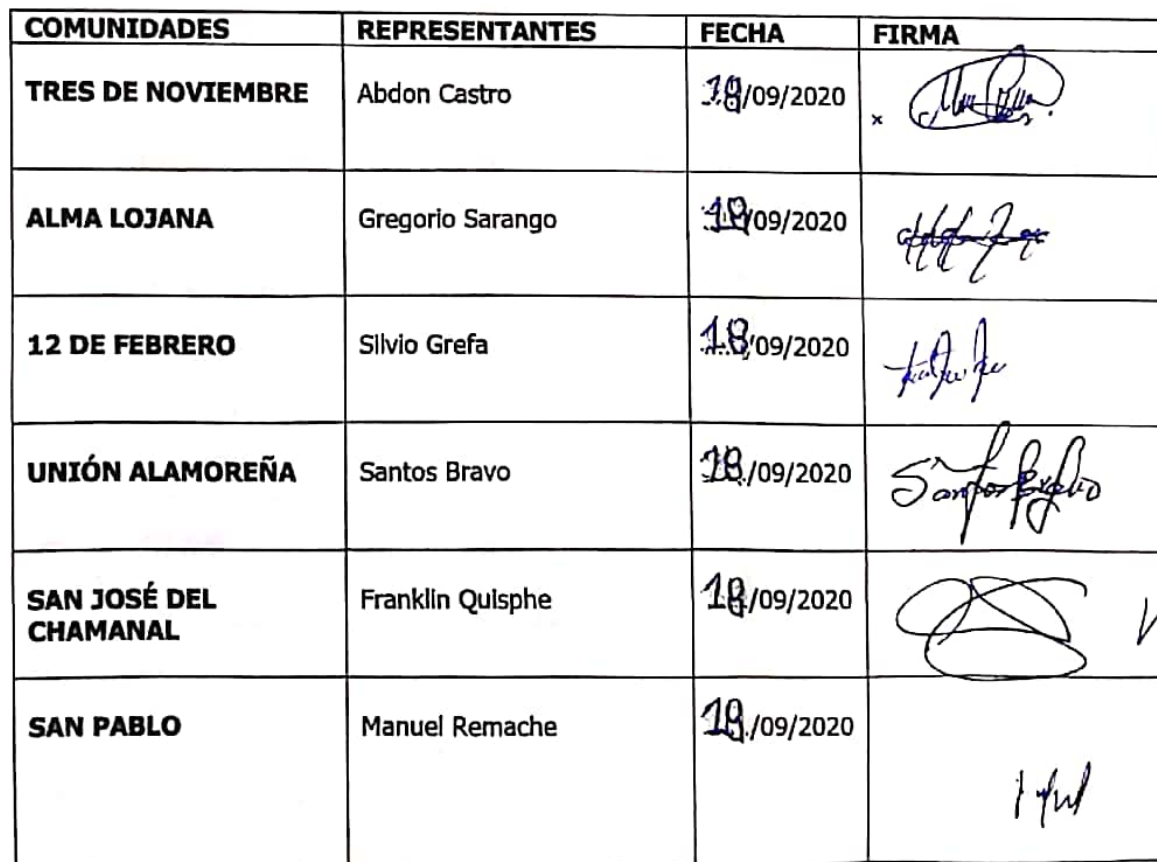 COMUNIDADES REPRESENTANTES FECHA FIRMA
TRES DE NOVIEMBRE Abdon Castro 18/09/2020
ALMA LOJANA Gregorio Sarango 18/09/2020
12 DE FEBRERO Silvio Grefa 18/09/2020
UNIÓN ALAMOREÑA Santos Bravo 18/09/2020
SAN JOSÉ DEL Franklin Quisphe 18/09/2020
CHAMANAL
SAN PABLO Manuel Remache 18/09/2020